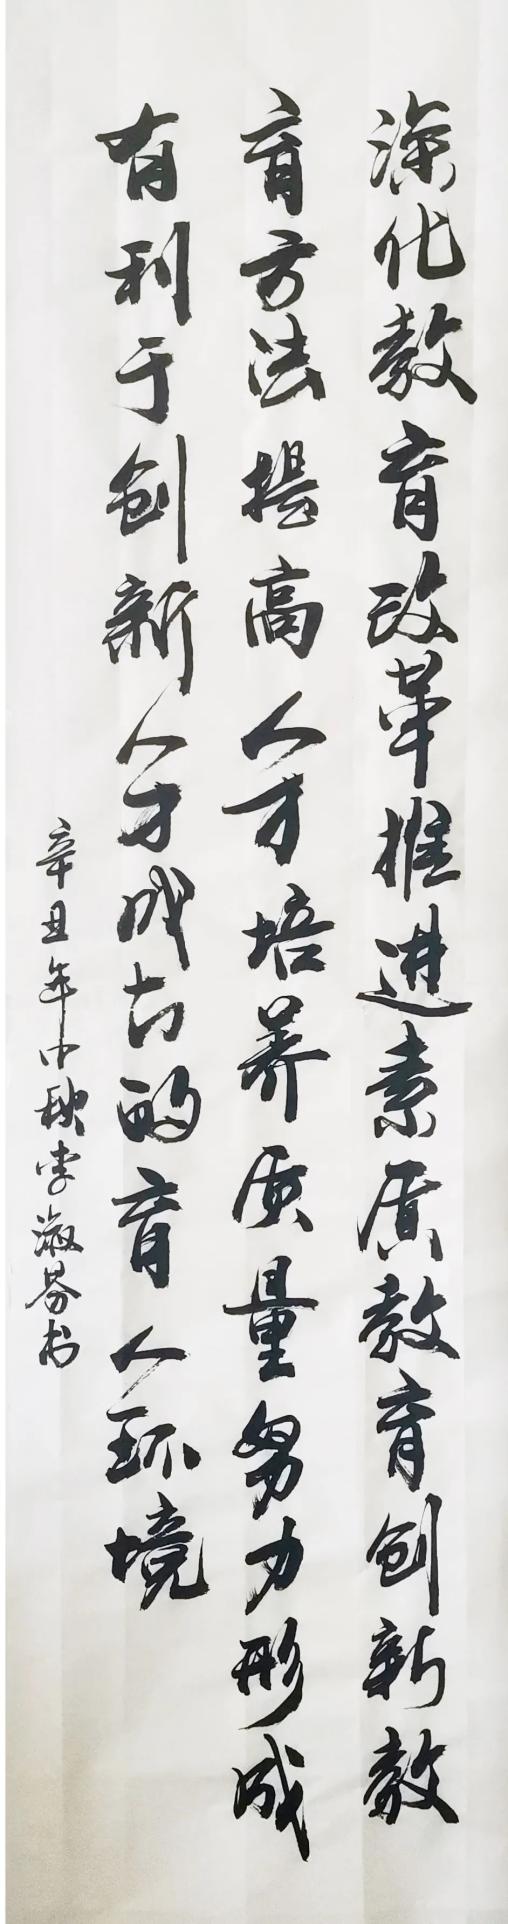 深化教育改革推进素质教育创新教
育方法提高人才培养质量努力形成
有利于创新人才成长的育人环境
辛丑年中秋李淑芬书